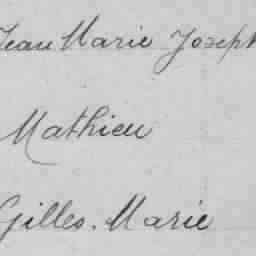 Jean Marie Joseph
Mathieu
Gilles. Marie